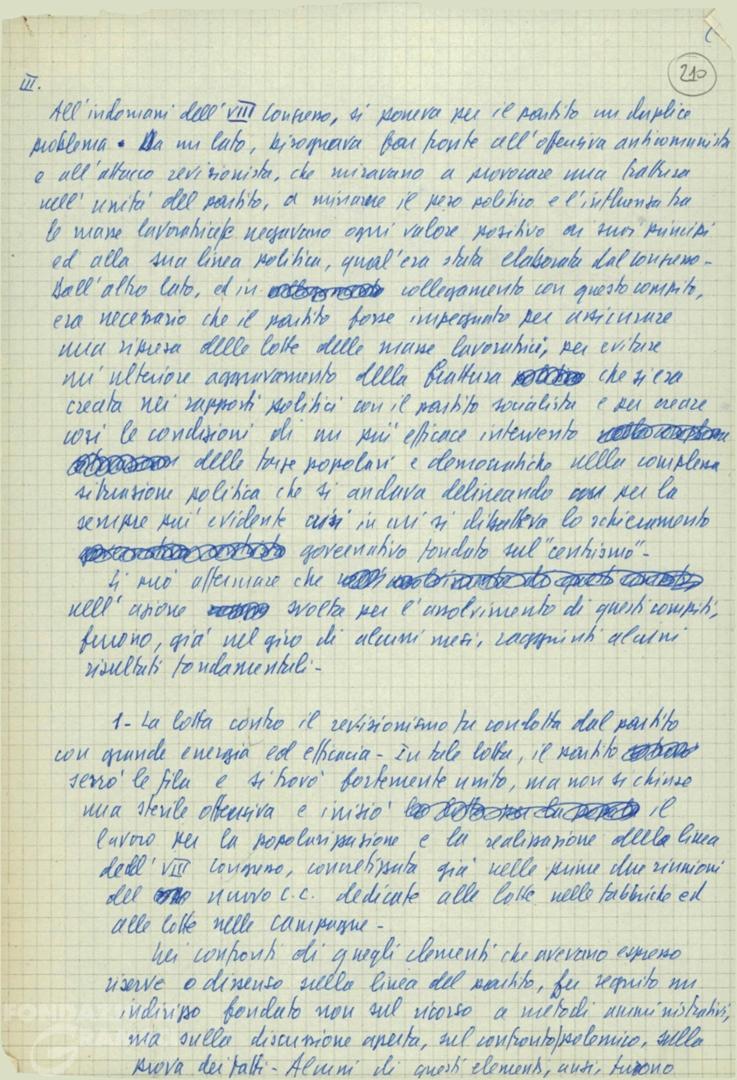 210
III.
All'indomani dell'VIII Congresso, si poneva per il partito un duplice
problema. Da un lato, bisognava far fronte all'offensiva anticomunista
e all'attacco revisionista, che miravano a provocare una frattura
nell'unità del partito, a minarne il peso politico e l'influenza tra
le masse lavoratrici e negavano ogni valore positivo ai suoi principi
ed alla sua linea politica, qual'era stata elaborata dal congresso -
Dall'altro lato, ed in collegamento con questo compito,
era necessario che il partito fosse impegnato per assicurare
una ripresa delle lotte delle masse lavoratrici, per evitare
un'ulteriore aggravamento della frattura che si era
creata nei rapporti politici con il partito socialista e per creare
così le condizioni di un più efficace intervento
delle forze popolari e democratiche nella complessa
situazione politica che si andava delineando per la
sempre più evidente crisi in cui si dibatteva lo schieramento
governativo fondato sul "centrismo" -
Si può affermare che
nell'azione svolta per l'assolvimento di questi compiti,
furono, già nel giro di alcuni mesi, raggiunti alcuni
risultati fondamentali -
1 - La lotta contro il revisionismo fu condotta dal partito
con grande energia ed efficacia - In tale lotta, il partito
serrò le fila e si trovò fortemente unito, ma non si chiuse
una sterile offensiva e iniziò il
lavoro per la popolarizzazione e la realizzazione della linea
dell'VIII Congresso, concretizzata già nelle prime due riunioni
del nuovo C.C. dedicate alle lotte nelle fabbriche ed
alle lotte nelle campagne -
Nei confronti di quegli elementi che avevano espresso
riserve o dissenso sulla linea del partito, fu seguito un
indirizzo fondato non sul ricorso a metodi amministrativi,
ma sulla discussione aperta, sul confronto polemico, sulla
prova dei fatti - Alcuni di questi elementi, anzi, furono
FONDAZI
GRA